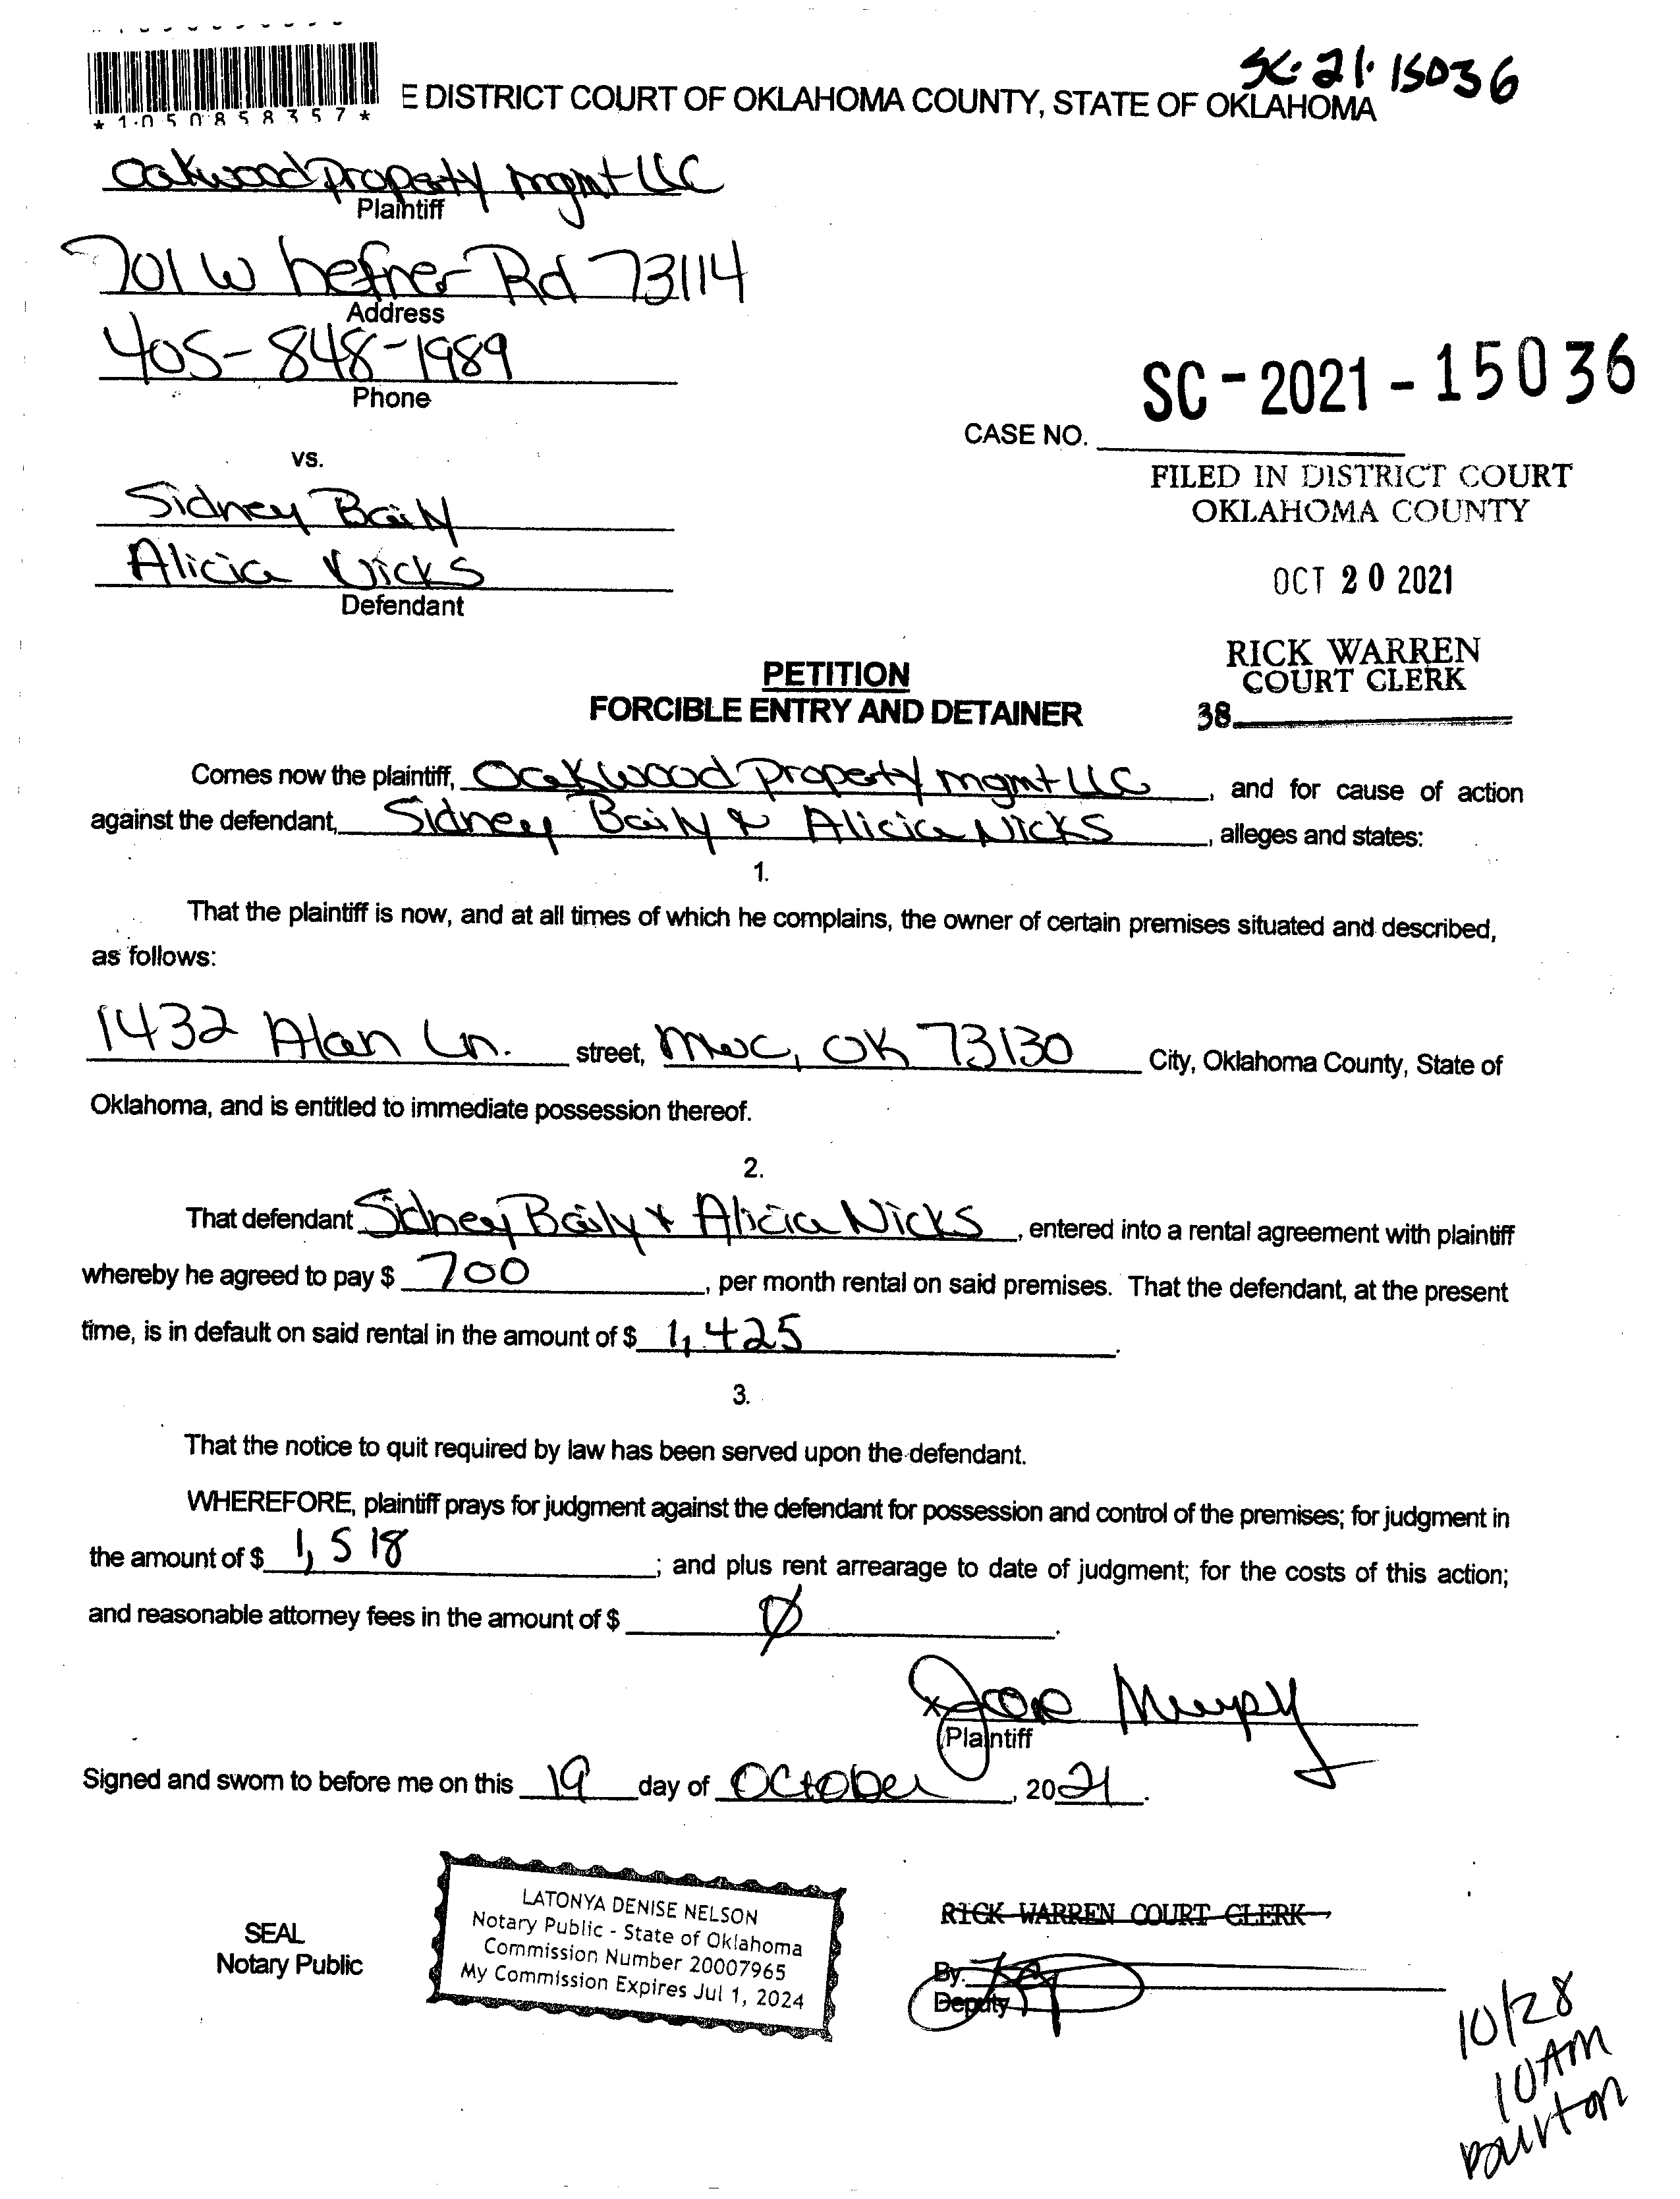 SC-21-15036
*1050858357*
E DISTRICT COURT OF OKLAHOMA COUNTY, STATE OF OKLAHOMA
Oakwood property mgmt LLC
Plaintiff
701 W hefner Rd 73114
Address
405-848-1989
Phone
SC-2021-15036
CASE NO.
vs.
FILED IN DISTRICT COURT
OKLAHOMA COUNTY
Sidney Baily
Alicia Nicks
Defendant
OCT 20 2021
RICK WARREN
COURT CLERK
38
PETITION
FORCIBLE ENTRY AND DETAINER
Comes now the plaintiff, Oakwood property mgmt LLC, and for cause of action
against the defendant, Sidney Baily & Alicia Nicks, alleges and states:
1.
That the plaintiff is now, and at all times of which he complains, the owner of certain premises situated and described,
as follows:
1432 Alan Ln. street, MWC, OK 73130 City, Oklahoma County, State of
Oklahoma, and is entitled to immediate possession thereof.
2.
That defendant Sidney Baily & Alicia Nicks, entered into a rental agreement with plaintiff
whereby he agreed to pay $ 700, per month rental on said premises. That the defendant, at the present
time, is in default on said rental in the amount of $ 1,425.
3.
That the notice to quit required by law has been served upon the defendant.
WHEREFORE, plaintiff prays for judgment against the defendant for possession and control of the premises; for judgment in
the amount of $ 1,518; and plus rent arrearage to date of judgment; for the costs of this action;
and reasonable attorney fees in the amount of $ Ø.
x
Plaintiff
Signed and sworn to before me on this 19 day of October, 2021.
SEAL
Notary Public
LATONYA DENISE NELSON
Notary Public - State of Oklahoma
Commission Number 20007965
My Commission Expires Jul 1, 2024
RICK WARREN COURT CLERK
By:
Deputy
10/28
10AM
Burton